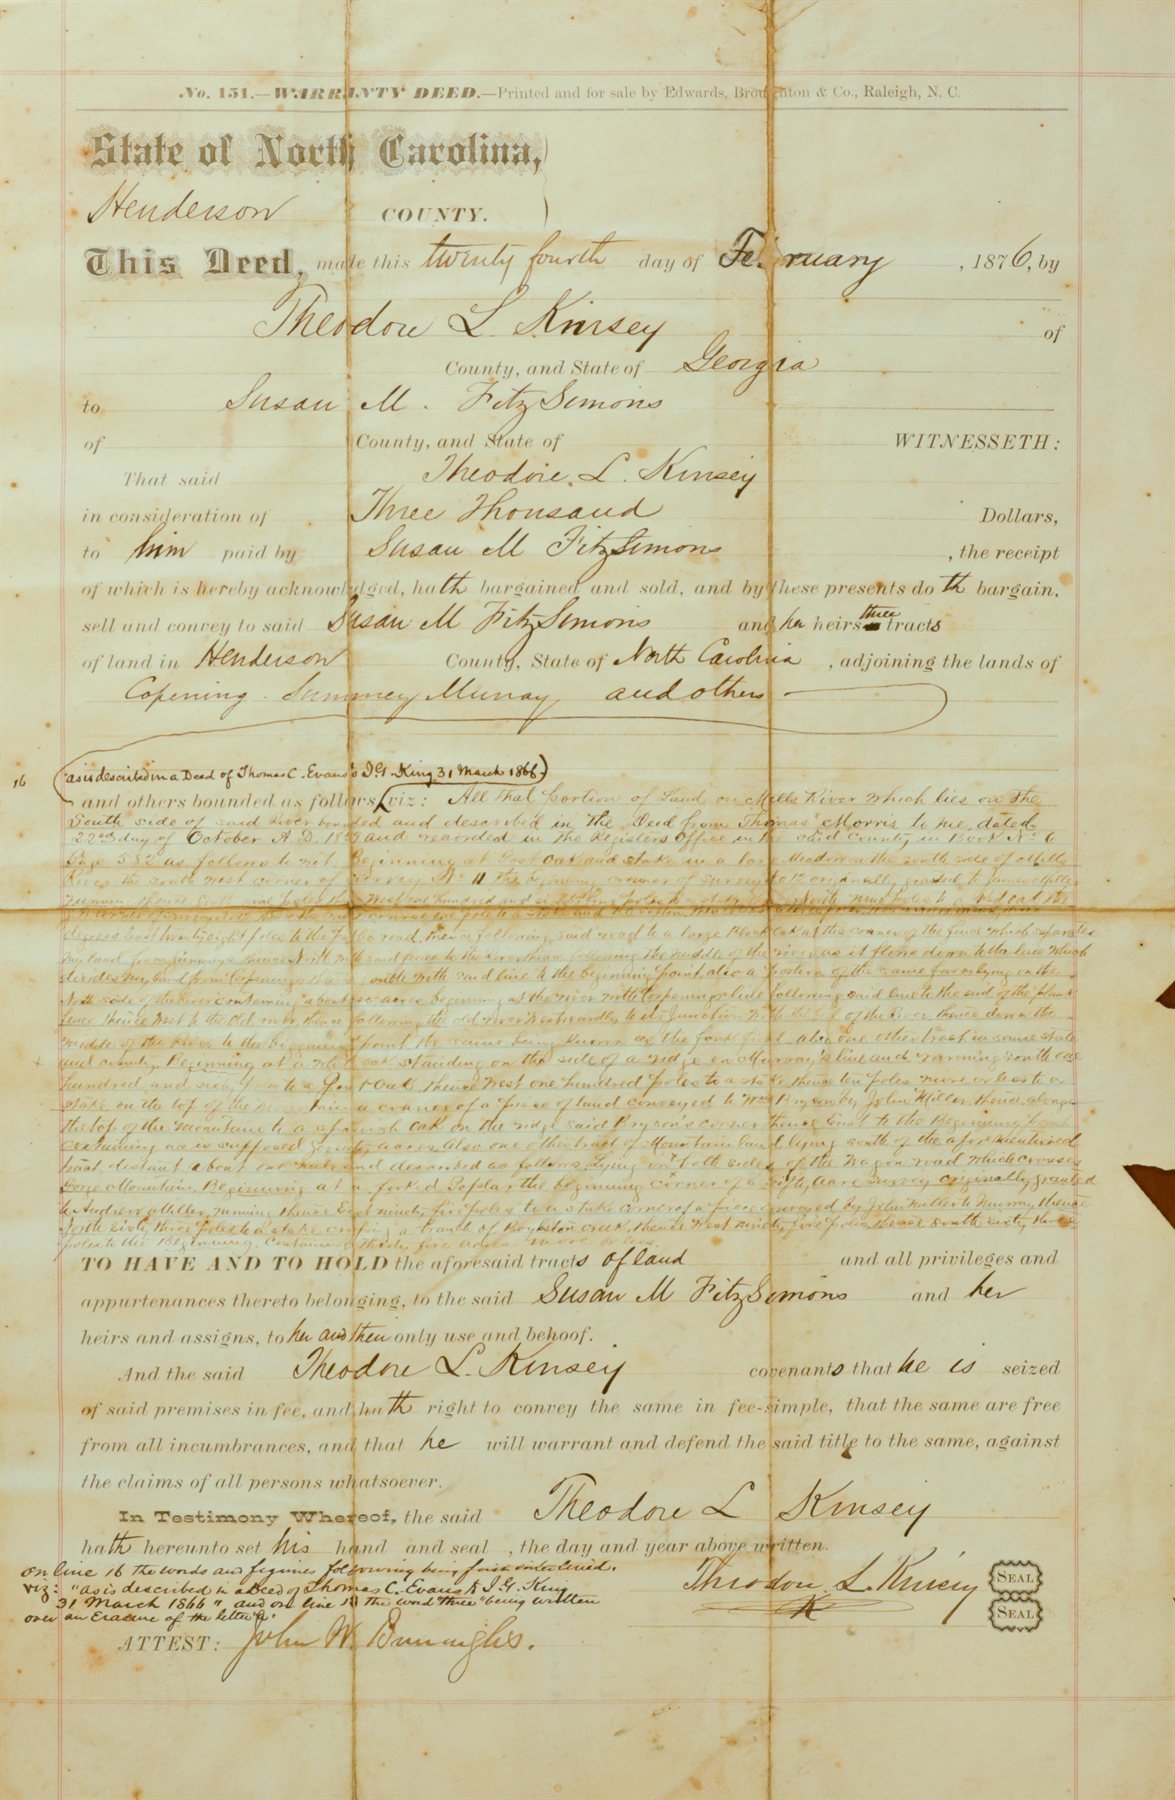 No. 151.—WARRANTY DEED.—Printed and for sale by Edwards, Broughton & Co., Raleigh, N. C.
State of North Carolina,
Henderson COUNTY.
This Deed, made this twenty fourth day of February , 1876, by
Theodore L. Kinsey of
County, and State of Georgia
to Susan M. FitzSimons
of County, and State of WITNESSETH:
That said Theodore L. Kinsey
in consideration of Three Thousand Dollars,
to him paid by Susan M FitzSimons , the receipt
of which is hereby acknowledged, hath bargained and sold, and by these presents doth bargain,
sell and convey to said Susan M FitzSimons and her heirs three tracts
of land in Henderson County, State of North Carolina , adjoining the lands of
Copening Summey Murray and others
16 as is described in a Deed of Thomas C. Evans to J. G. King 31 March 1866
and others bounded as follows, viz: All that portion of Land on Mills River which lies on the
South side of said River bounded and described in the Deed from Thomas Morris to me dated
22nd day of October A. D. and recorded in the Registers Office in the said County in Book No 6
Page 582 as follows to wit. Beginning at Post Oak and stake in a Meadow on the south side of Mills
River the south west corner of survey No 11 the beginning corner of survey No 12 originally granted to James Miller
degrees East twenty eight poles to the road, thence following said road to a large Black Oak at the corner of the fence which separates
my land from thence North with said fence to the River thence following the middle of the river as it flows down to the line which
divides my land from Copenings thence south with said line to the beginning point also a portion of the same farm lying on the
North side of the River containing about acres, beginning at the river with Copenings line following said line to the end of the plank
fence thence West to the Old river, thence following the old river Westwardly to its junction with the of the River thence down the
middle of the River to the beginning point the same being known as the fork field also one other tract in same State
and county, Beginning at a white oak standing on the side of a ridge on Murray's line and running south one
hundred and sixty poles to a Post Oak, thence West one hundred poles to a stake thence ten poles more or less to a
stake on the top of the mountain a corner of a piece of land conveyed to Wm Bryson by John Miller, thence along
the top of the mountain to a Spanish Oak on the ridge said Bryson's corner thence East to the Beginning Point
containing as is supposed acres also one other tract of Mountain land lying south of the afore mentioned
tract, distant about one mile and described as follows. Lying on both sides of the wagon road which crosses
Mountain, Beginning at a forked Poplar the beginning corner of a fifty acre survey originally granted
to Andrew Miller, running thence East ninety five poles to a stake corner of a piece conveyed by John Miller to Murray thence
North sixty three poles to a stake crossing a branch of Boylston creek, thence West ninety five poles, thence south sixty three
poles to the Beginning. Containing thirty five acres more or less.
TO HAVE AND TO HOLD the aforesaid tracts of land and all privileges and
appurtenances thereto belonging, to the said Susan M FitzSimons and her
heirs and assigns, to her and their only use and behoof.
And the said Theodore L. Kinsey covenants that he is seized
of said premises in fee, and hath right to convey the same in fee-simple, that the same are free
from all incumbrances, and that he will warrant and defend the said title to the same, against
the claims of all persons whatsoever.
In Testimony Whereof, the said Theodore L Kinsey
hath hereunto set his hand and seal , the day and year above written.
on line 16 the words and figures following being first interlined.
viz: "as is described in a Deed of Thomas C. Evans to J. G. King
31 March 1866" and on line 11 the word "three" being written
over an Erasure of the letter "a".
Theodore L. Kinsey SEAL
SEAL
ATTEST: John W.